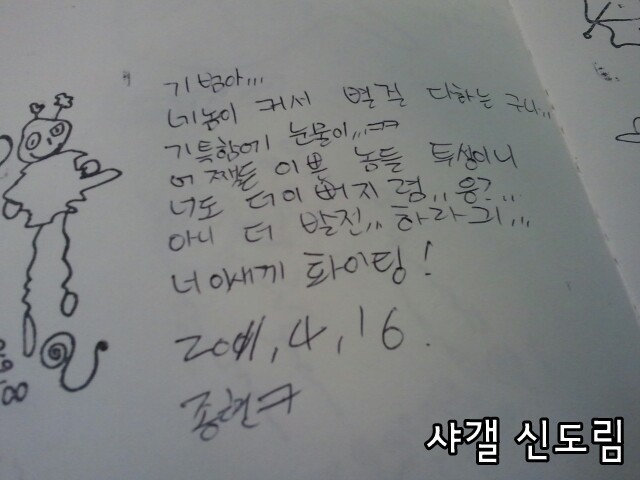 기범아...
네놈이 커서 별걸 다하는구나...
기특함에 눈물이...ㅋㅋ
어쨌든 이쁜 놈들 투성이니
너도 더 이뻐지렴,, 응?...
아니 더 발전,,, 하라긔,,,
너 이새끼 화이팅!
2011, 4, 16.
종현ㅋ
샤갤 신도림